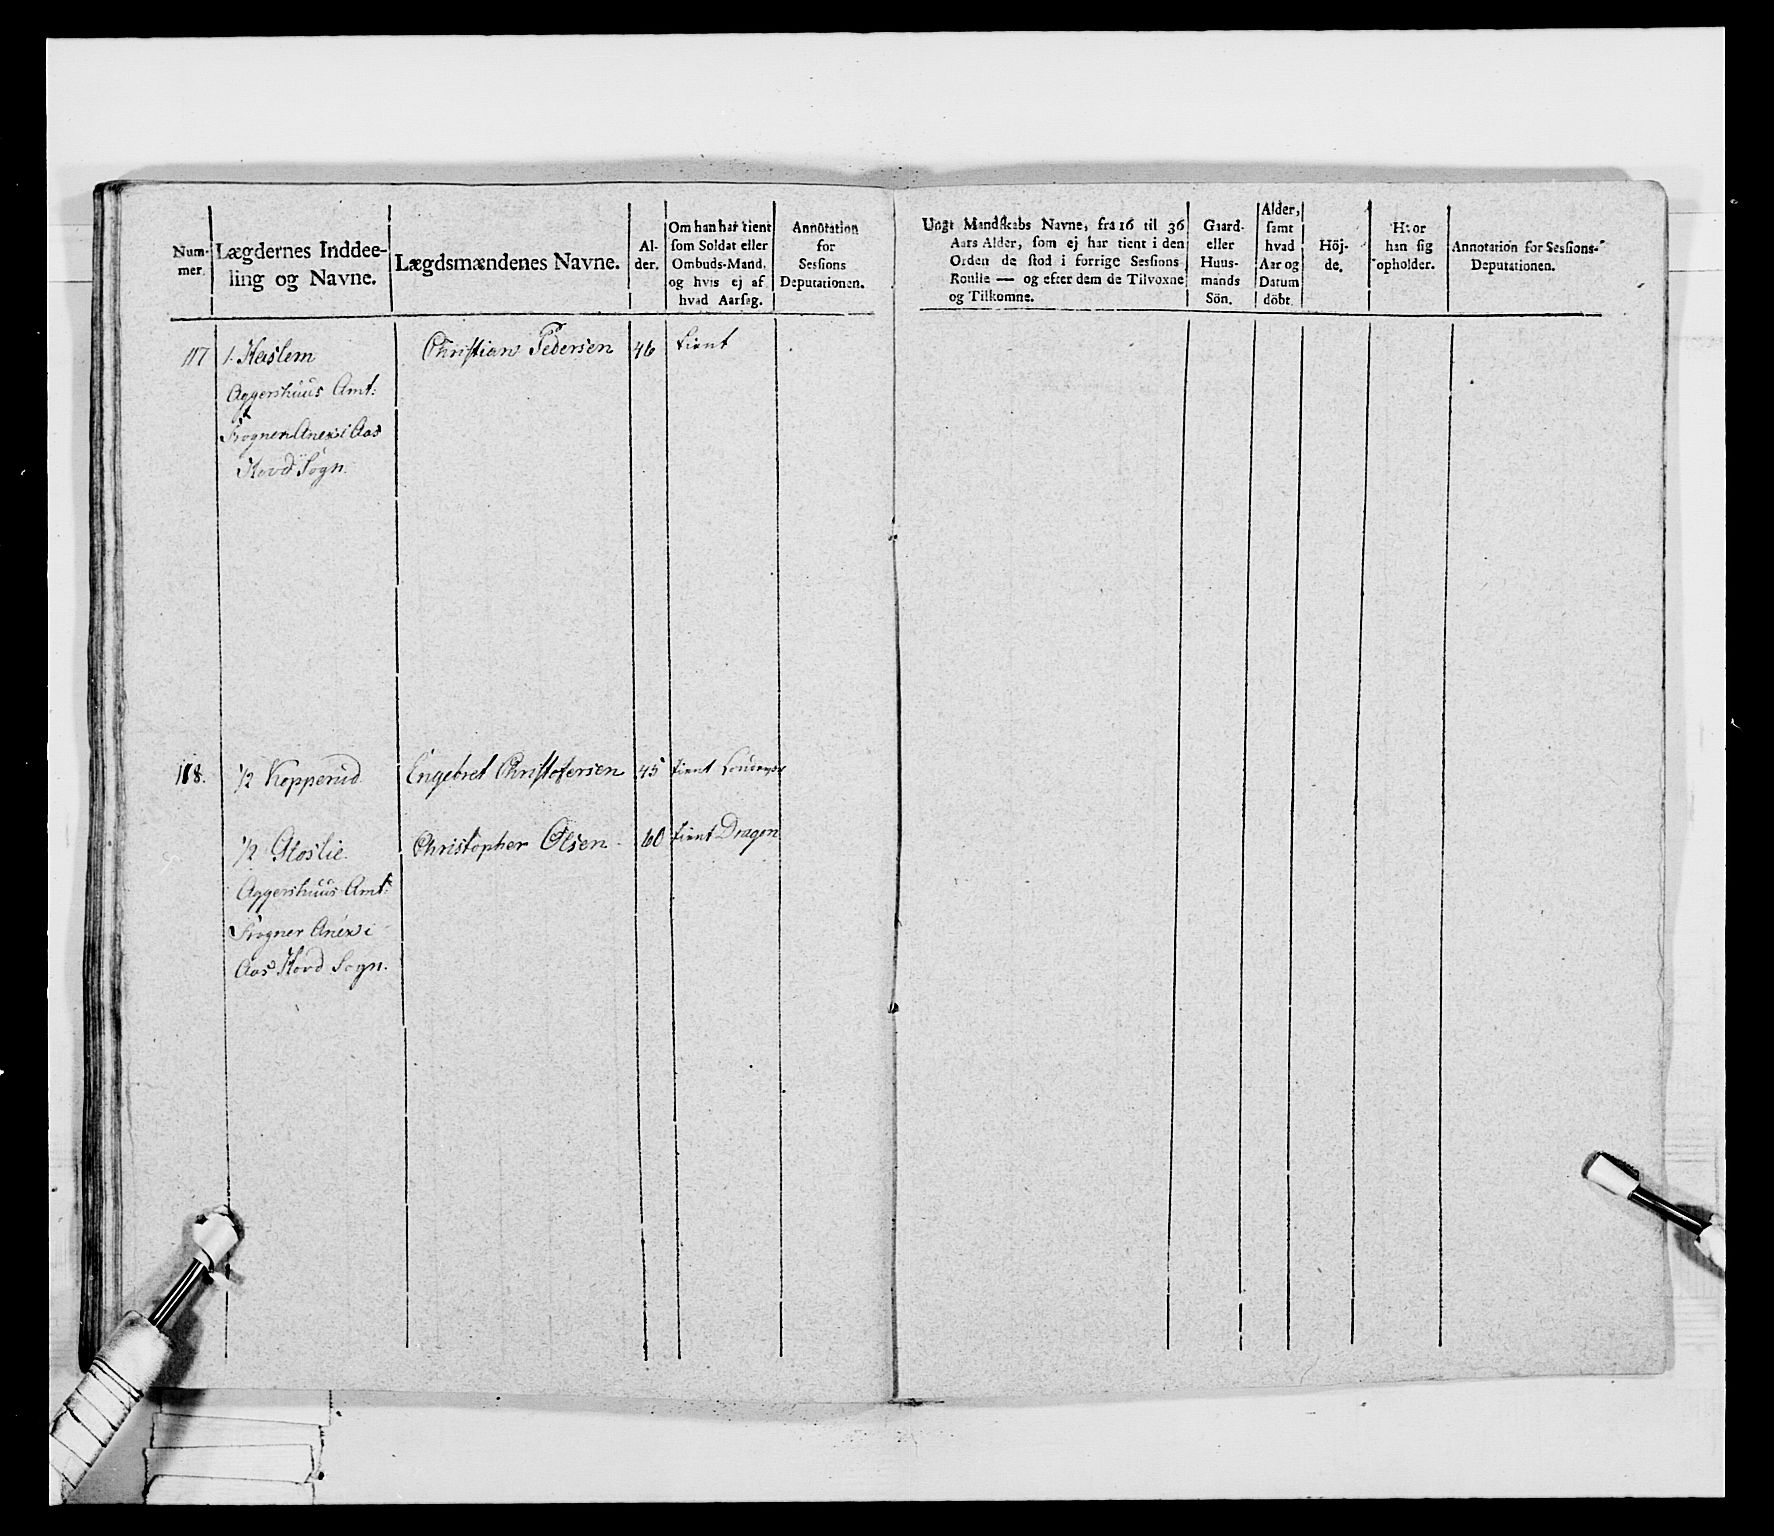 Num-
mer.
Lægdernes Inddee-
ling og Navne.
Lægdsmændenes Navne.
Al-
der.
Om han har tient
som Soldat eller
Ombuds-Mand,
og hvis ej af
hvad Aarsag.
Annotation
for
Sessions
Deputationen.
Ungt Mandskabs Navne, fra 16 til 36
Aars Alder, som ej har tient i den
Orden de stod i forrige Sessions
Roulle — og efter dem de Tilvoxne
og Tilkomne.
Gaard-
eller
Huus-
mands
Sön.
Alder,
samt
hvad
Aar og
Datum
döbt.
Höj-
de.
Hvor
han sig
opholder.
Annotation for Sessions-
Deputationen.
117 1. Haslem Christian Pedersen 46 tient
Aggershuus Amt:
Frogner Anex i Aas
Hovd Sogn.
118. 1/2 Kopperud Engebret Christofersen 45 tient
1/2 Gloslie. Christopher Olsen 60 tient Dragon
Aggershuus Amt:
Frogner Anex i
Aas Hovd Sogn.